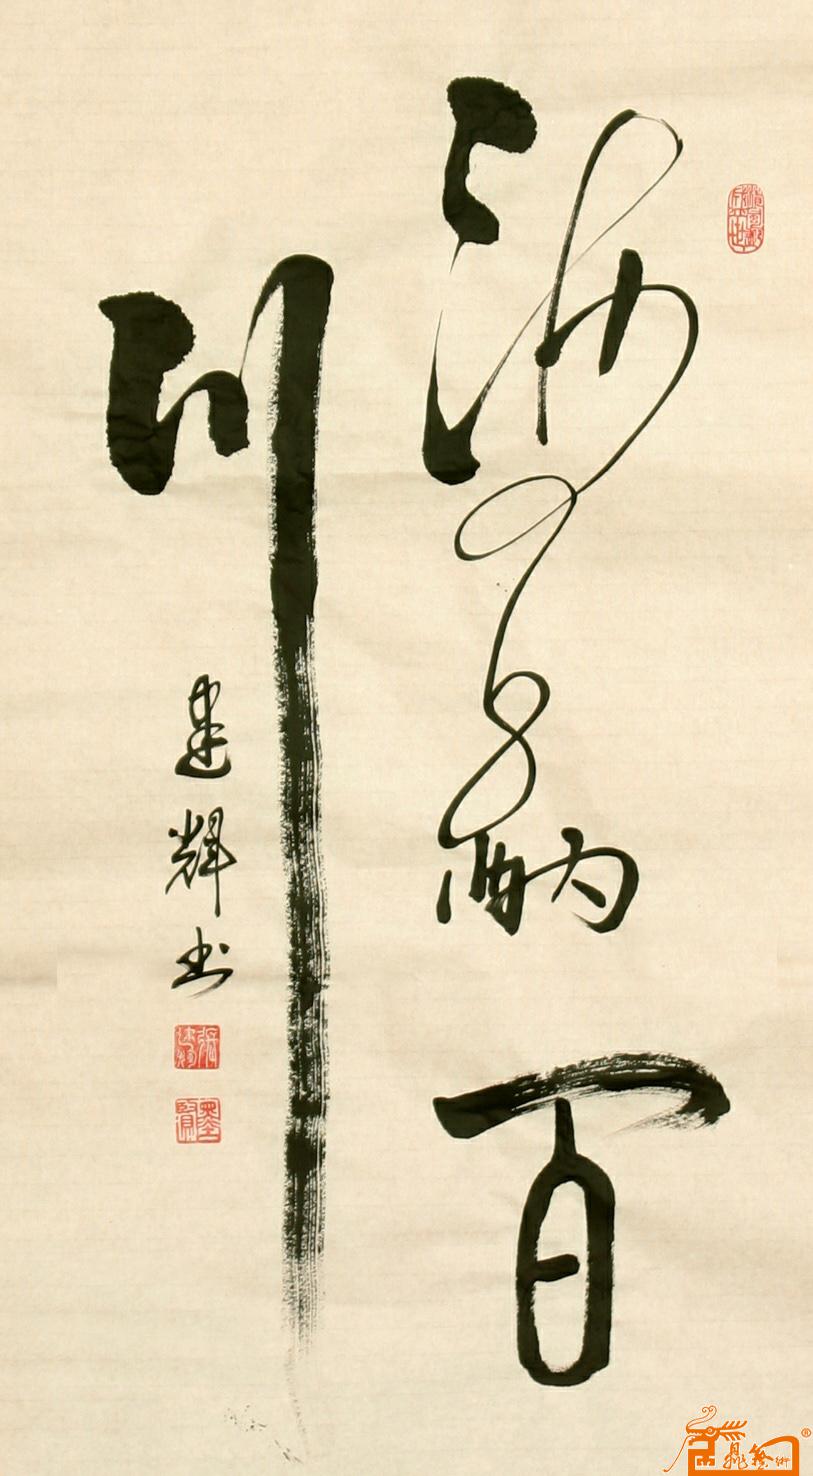 海纳百
川
建辉书